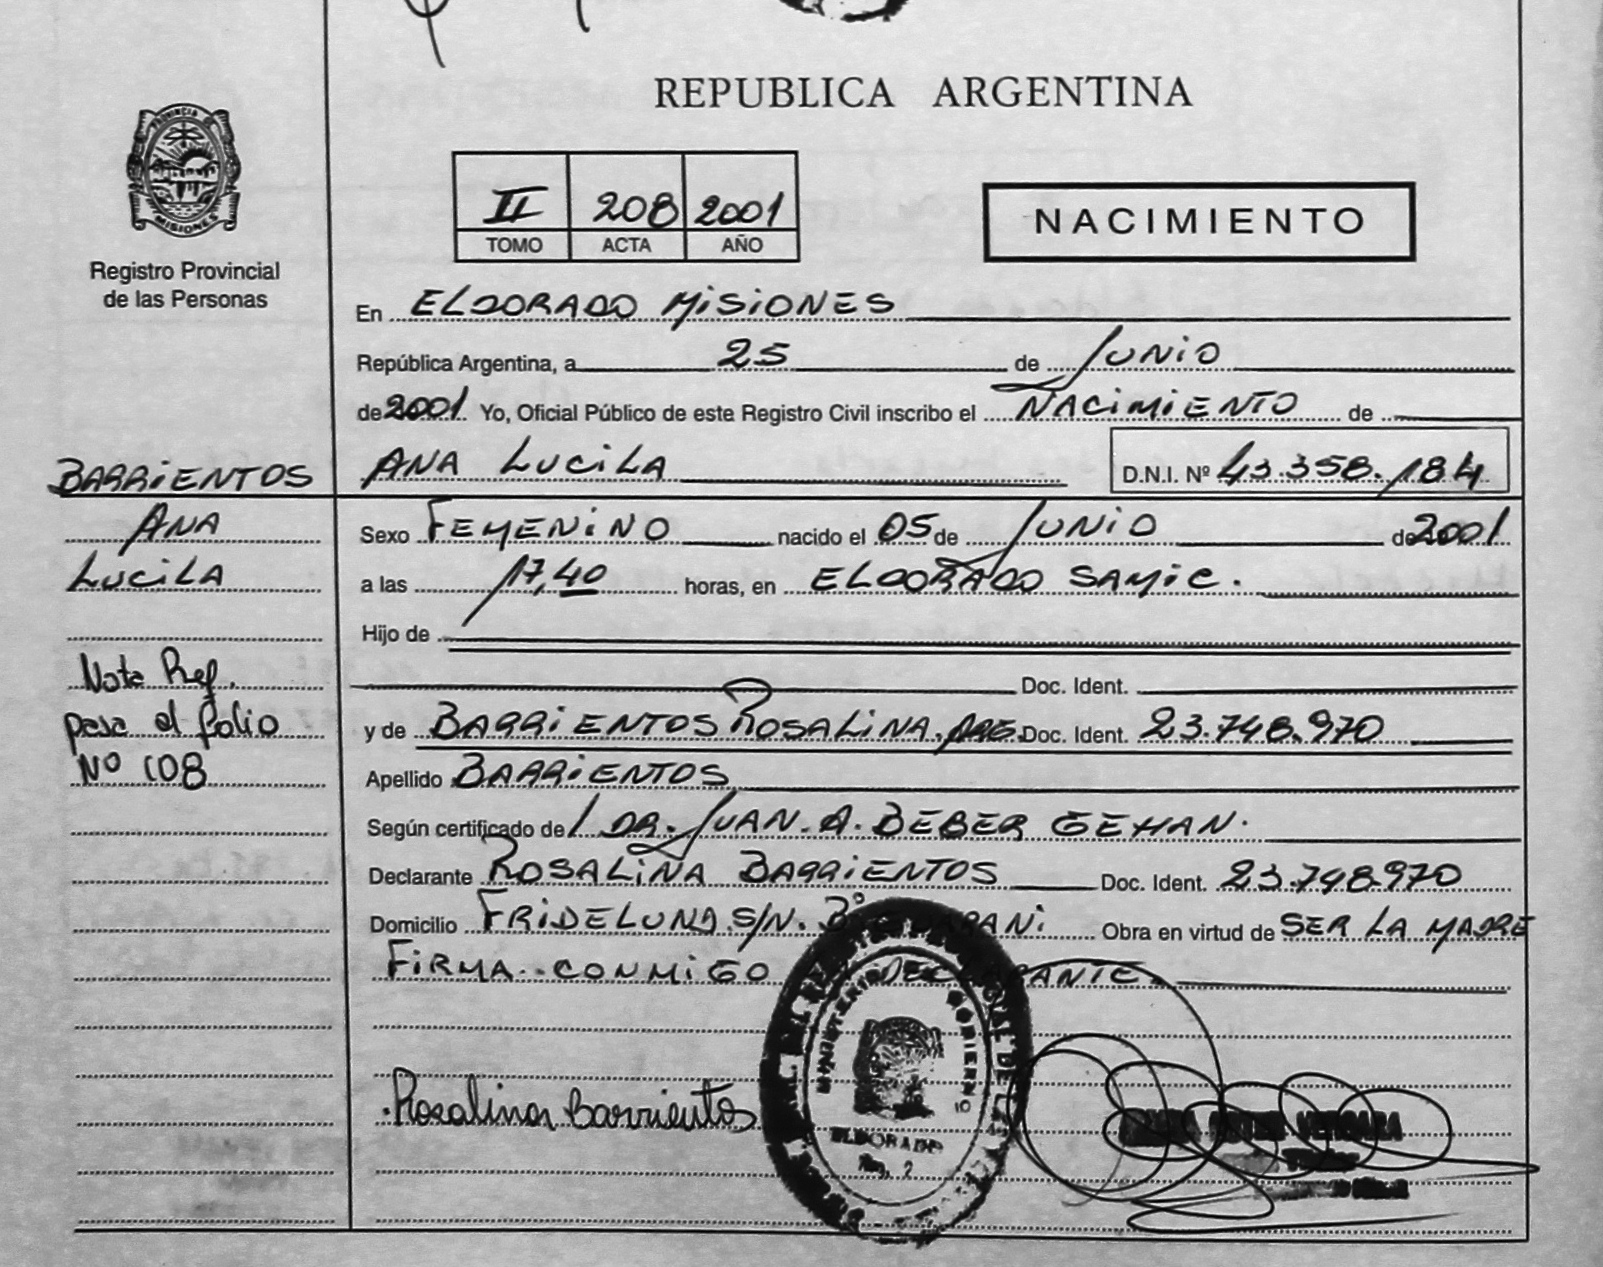 REPUBLICA ARGENTINA
PROVINCIA DE MISIONES
Registro Provincial
de las Personas
II 208 2001
TOMO ACTA AÑO
NACIMIENTO
En ELDORADO MISIONES
República Argentina, a 25 de JUNIO
de 2001 Yo, Oficial Público de este Registro Civil inscribo el NACIMIENTO de
ANA LUCILA D.N.I. Nº 43.358.184
BARRIENTOS
ANA
LUCILA
Sexo FEMENINO nacido el 05 de JUNIO de 2001
a las 17,40 horas, en ELDORADO SAMIC.
Hijo de
Doc. Ident.
Nota Ref.
pasa al folio
Nº 108
y de BARRIENTOS ROSALINA, ARG. Doc. Ident. 23.748.970
Apellido BARRIENTOS
Según certificado de DR. JUAN. A. BEBER GEHAN.
Declarante ROSALINA BARRIENTOS Doc. Ident. 23.748.970
Domicilio S/N. Bº Obra en virtud de SER LA MADRE
FIRMA CONMIGO DECLARANTE.
Rosalina Barrientos
MINISTERIO DE GOBIERNO
ELDORADO